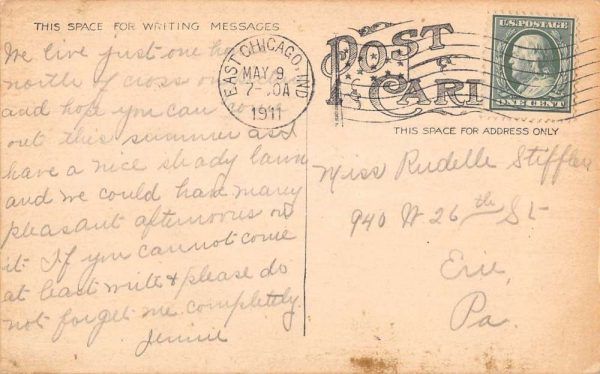 THIS SPACE FOR WRITING MESSAGES
We live just one
north of cross
and hope you can
out this summer as I
have a nice shady lawn
and we could have many
pleasant afternoons on
it. If you cannot come
at least write & please do
not forget me completely.
Jennie
EAST CHICAGO, IND
MAY 9
1911
POST CARD
U.S. POSTAGE
ONE CENT
THIS SPACE FOR ADDRESS ONLY
Miss Rudelle Stiffler
940 W 26th St
Erie,
Pa.